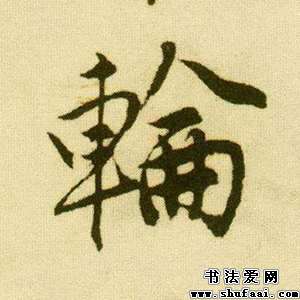 輪
书法爱网
www.shufaai.com